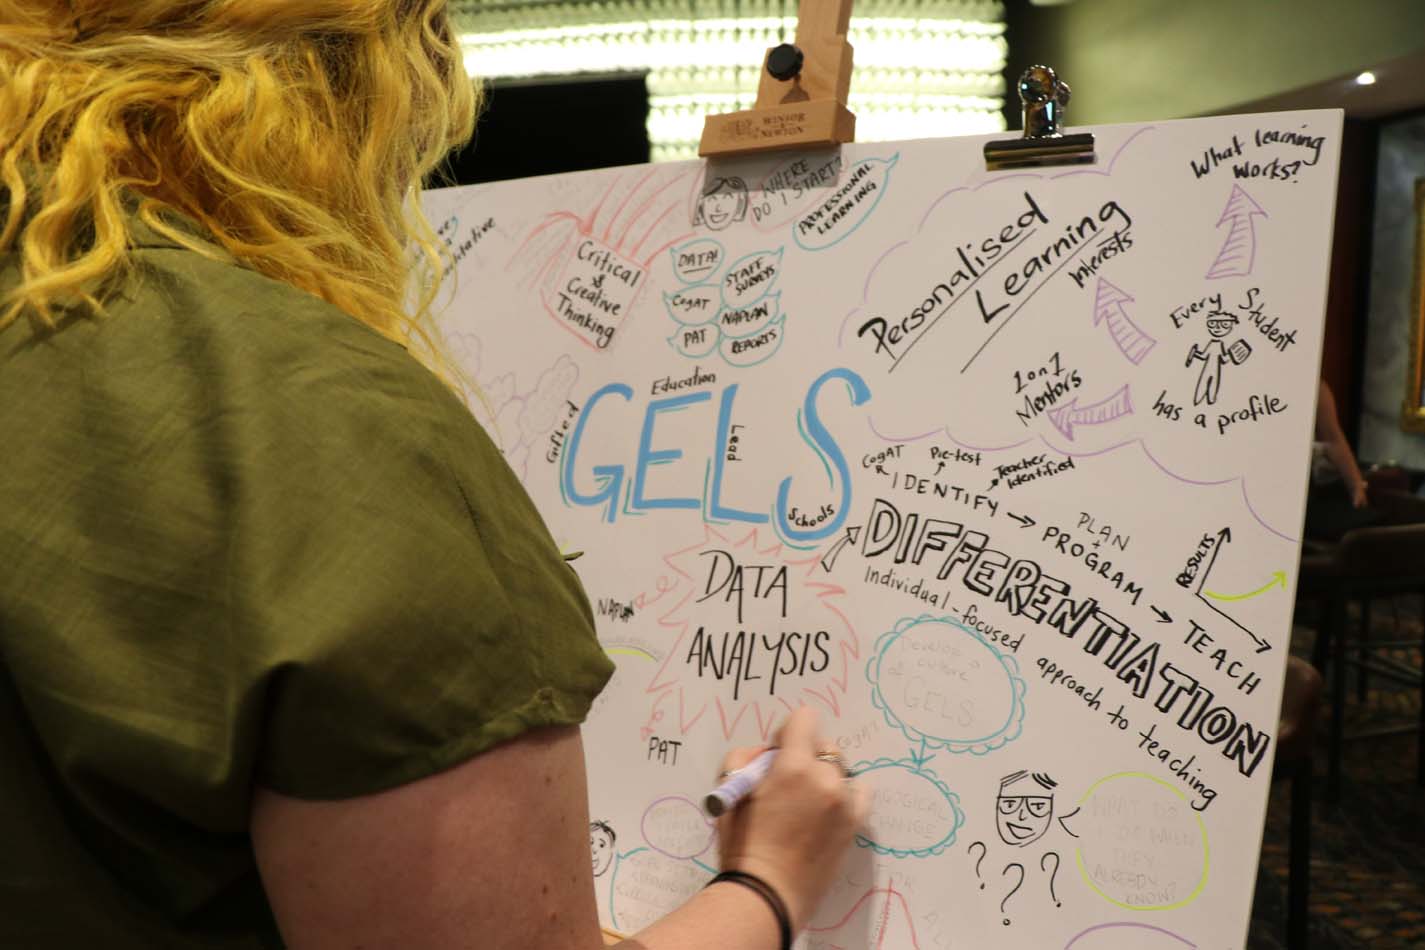 WINSOR
NEWTON
WHERE
DO I START?
PROFESSIONAL
LEARNING
Critical
&
Creative
Thinking
DATA!
STAFF
SURVEYS
CogAT
NAPLAN
PAT
REPORTS
Personalised
Learning
What learning
works?
Interests
1 on 1
Mentors
Every Student
has a profile
Education
Gifted
GELS
Lead
Schools
CogAT
Pre-test
Teacher
Identified
IDENTIFY → PROGRAM → TEACH
PLAN
+
DIFFERENTIATION
Individual-focused approach to teaching
RESULTS
DATA
ANALYSIS
NAPLAN
PAT
Develop a
culture
of
GELS
CogAT?
AGOGICAL
CHANGE
WHAT DO
I DO WHEN
THEY
ALREADY
KNOW?
? ? ?